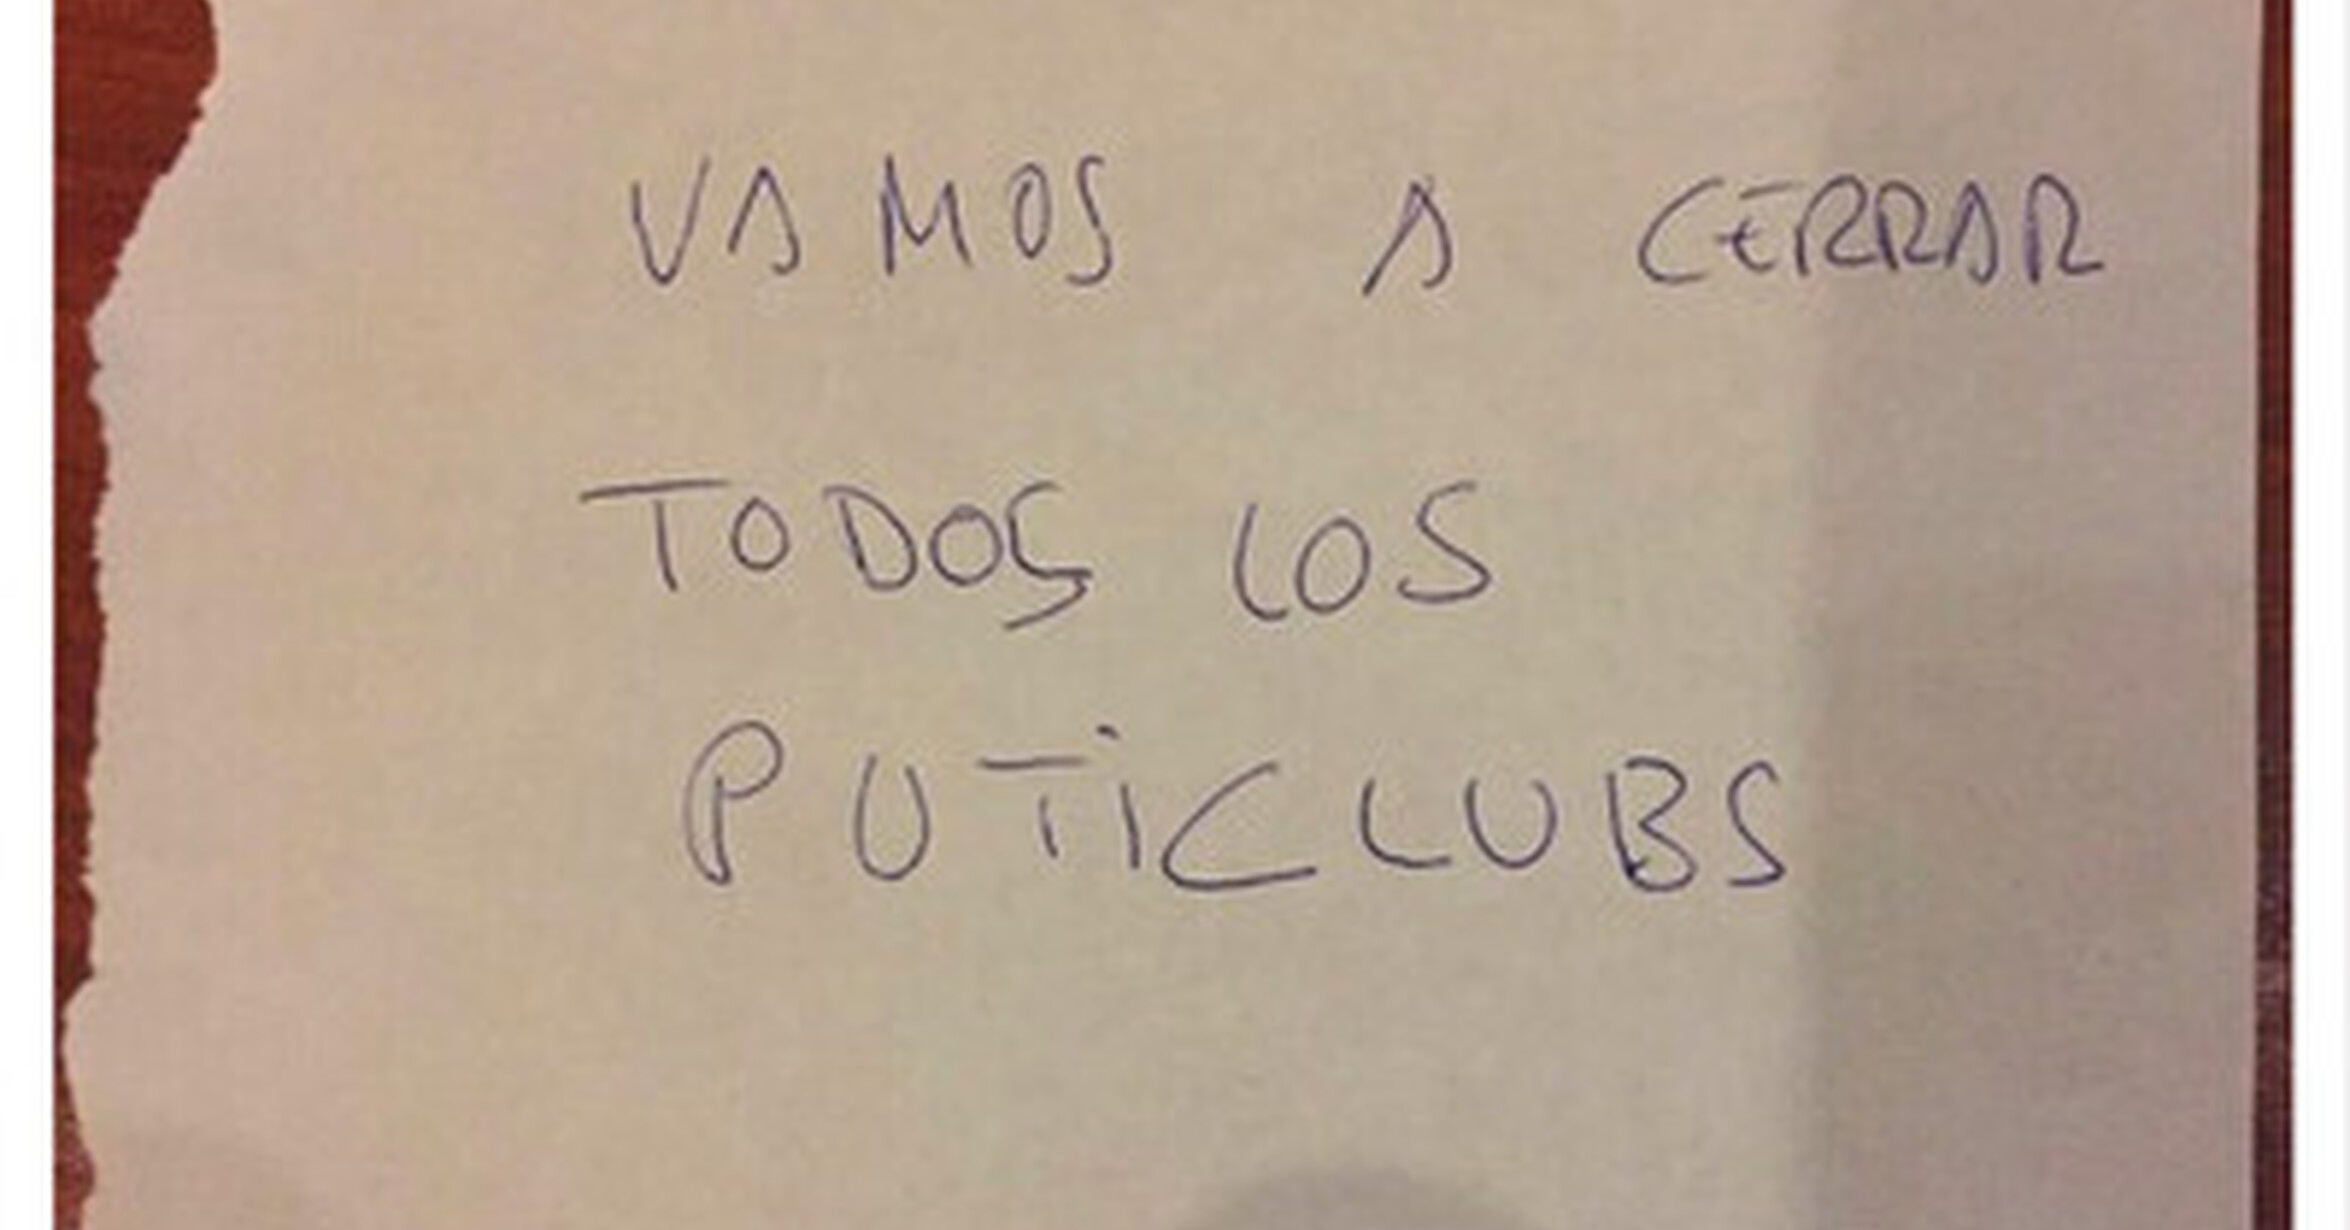 VAMOS A CERRAR
TODOS LOS
PUTiCLUBS